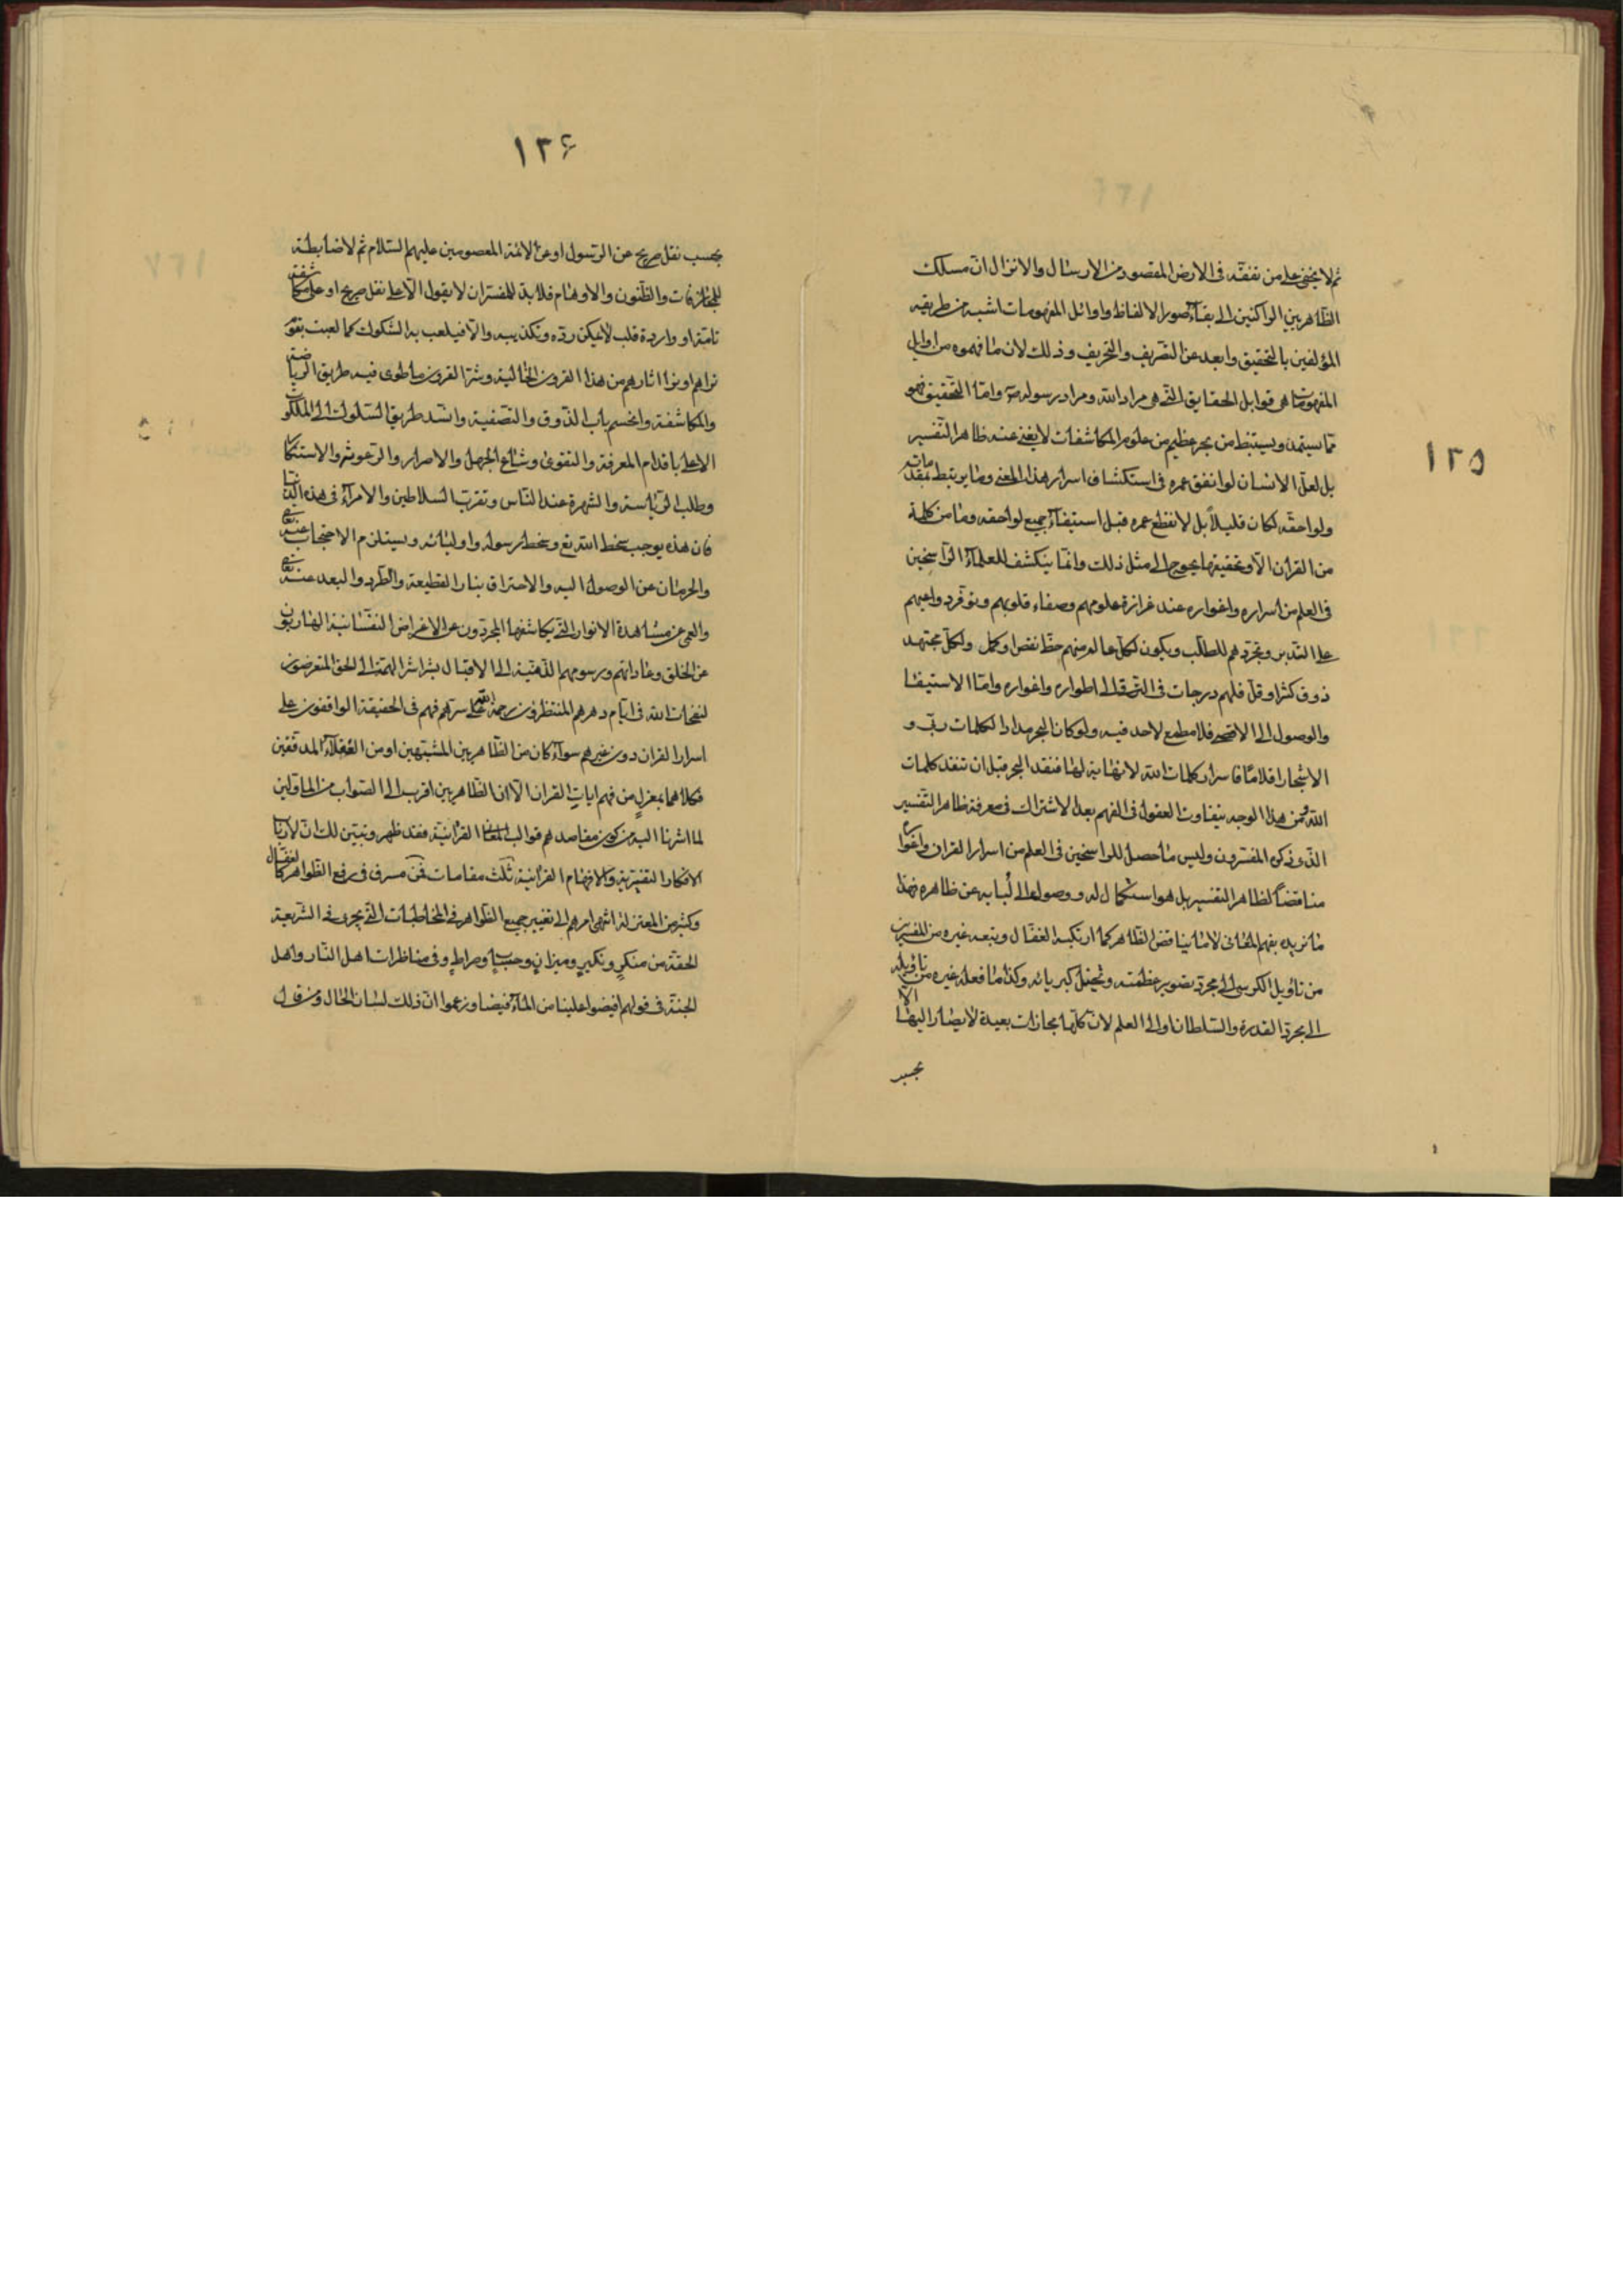 ١٣٥
ثم لا يخفى على من تفقه فى الارض المقصود من الارسال والانزال ان مسلك
الظاهريين الراكنين الى بقاء صور الالفاظ واوائل المفهومات اشبه من طريقه
المؤلفين بالتحقيق وابعد عن التصريف والتحريف وذلك لان ما فهموه من اوايل
المفهومات هى قوابل الحقايق التى هى مراد الله ومراد رسوله ص واما التحقيق فهو
مما يستمد ويستنبط من بحر عظيم من علوم المكاشفات لا يغنى عنه ظاهر التفسير
بل لعل الانسان لو انفق عمره فى استكشاف اسرار هذا المعنى وما يرتبط بمقدماته
ولواحقه لكان قليلاً بل لانقطع عمره قبل استيفاء جميع لواحقه وما من كلمة
من القران الا وتحقيقها يحوج الى مثل ذلك وانما ينكشف للعلماء الراسخين
فى العلم من اسراره واغواره عند غزارة علومهم وصفاء قلوبهم وتوفر دواعيهم
على التدبر وتجردهم للطلب ويكون لكل عالم منهم حظ نقص او كمل ولكل مجتهد
ذوق كثر او قل فلهم درجات فى الترقى الى اطواره واغواره واما الاستيفا
والوصول الى الاقصى فلا مطمع لاحد فيه ولو كان البحر مدادا لكلمات ربى و
الاشجار اقلاما فاسرار كلمات الله لا نهاية لها فنفد البحر قبل ان تنفد كلمات
الله فمن هذا الوجه يتفاوت العقول فى الفهم بعد الاشتراك فى معرفة ظاهر التفسير
الذى ذكره المفسرون وليس ما حصل للراسخين فى العلم من اسرار القران واغواره
مناقضاً لظاهر التفسير بل هو استكمال له ووصول الى لبابه عن ظاهره فهذا
ما نريد بفهم المعانى لا ما يناقض الظاهر كما ارتكبه القفال وتبعه غيره من المفسرين
من تاويل الكرسى الى مجرد تصوير عظمته وتخييل كبريائه وكذا ما فعله غيره من تاويله
الى مجرد القدرة والسلطان او الى العلم لان كلها مجازات بعيدة لا يصار اليها الا
بحسب
١٣۶
بحسب نقل صريح عن الرسول او عن الائمة المعصومين عليهم السلام ثم لا ضابطة
للمجازفات والظنون والاوهام فلا بد للمفسر ان لا يقول الا على نقل صريح او على مكاشفة
تامة او واردة قلب لا يمكن رده وتكذيبه والا فيلعب به الشكوك كما لعبت بقوم
نراهم او نرا اثارهم من هذا القرون الخالية وشر القرون ما طوى فيه طريق الرياضة
والمكاشفة وانحسم باب الذوق والتصفية وانسد طريق السلوك الى الملكوت
الاعلى باقدام المعرفة والتقوى وشاع الجهل والاصرار والرعونة والاستنكار
وطلب الرياسة والشهرة عند الناس وتقرب السلاطين والامراء فى هذه الدنيا
فان هذه يوجب سخط الله تع وسخط رسوله واوليائه ويستلزم الاحتجاب عنه تعالى
والحرمان عن الوصول اليه والاحتراق بنار القطيعة والطرد والبعد عنه تعالى
والعمى عن مشاهدة الانوار التى يكاشفها المجردون عن الاغراض النفسانية الهاربون
عن الخلق وعاداتهم ورسومهم الذهنية الى الاقبال بشراشر الهمة الى الحق المتعرضون
لنفحات الله فى ايام دهرهم المنتظرون رحمة الله على سرهم فهم فى الحقيقة الواقفون على
اسرار القران دون غيرهم سواء كان من الظاهريين المشبهين او من العقلاء المدققين
فكلاهما بمعزل من فهم ايات القران الا ان الظاهريين اقرب الى الصواب من الماولين
لما اشرنا اليه من كون مقاصدهم قوالب المعانى القرانية فقد ظهر وتبين لك ان لارباب
الافكار التفسيرية والافهام القرانية ثلث مقامات فمن مسرف فى رفع الظواهر كالقفال
وكثير من المعتزلة انتهى امرهم الى تغيير جميع الظواهر فى المخاطبات التى يجرى فى الشريعة
الحقة من منكرٍ ونكيرٍ وميزانٍ وحسابٍ وصراطٍ وفى مناظرات اهل النار واهل
الجنة فى قولهم افيضوا علينا من الماء فيضا وزعموا ان ذلك لسان الحال ومن قال